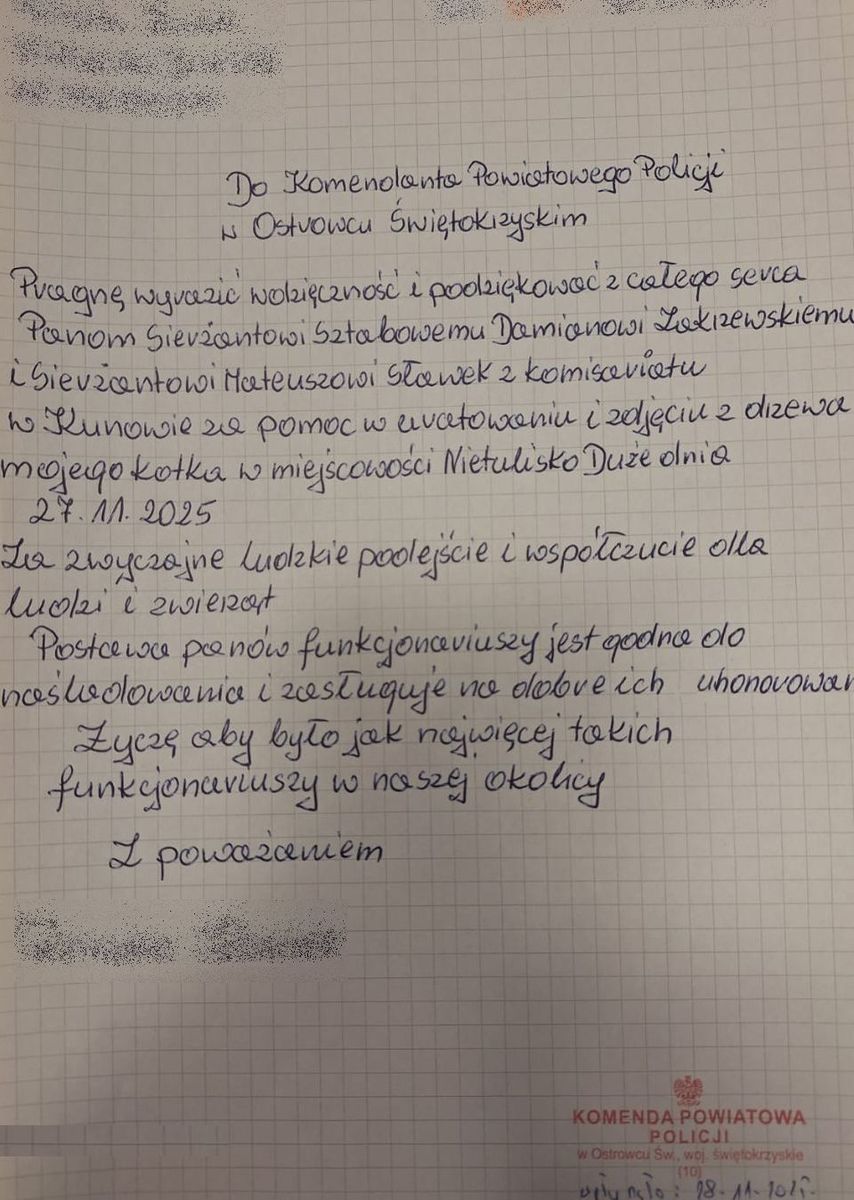 Do Komendanta Powiatowego Policji
w Ostrowcu Świętokrzyskim
Pragnę wyrazić wdzięczność i podziękować z całego serca
Panom Sierżantowi Sztabowemu Damianowi Zakrzewskiemu
i Sierżantowi Mateuszowi Sławek z komisariatu
w Kunowie za pomoc w uratowaniu i zdjęciu z drzewa
mojego kotka w miejscowości Nietulisko Duże dnia
27.11.2025
Za zwyczajne ludzkie podejście i współczucie dla
ludzi i zwierząt
Postawa panów funkcjonariuszy jest godna do
naśladowania i zasługuje na dobre ich uhonorowan
Życzę aby było jak najwięcej takich
funkcjonariuszy w naszej okolicy
Z poważaniem
KOMENDA POWIATOWA
POLICJI
w Ostrowcu Św., woj. świętokrzyskie
(10)
wpłynęło: 28.11.2025.